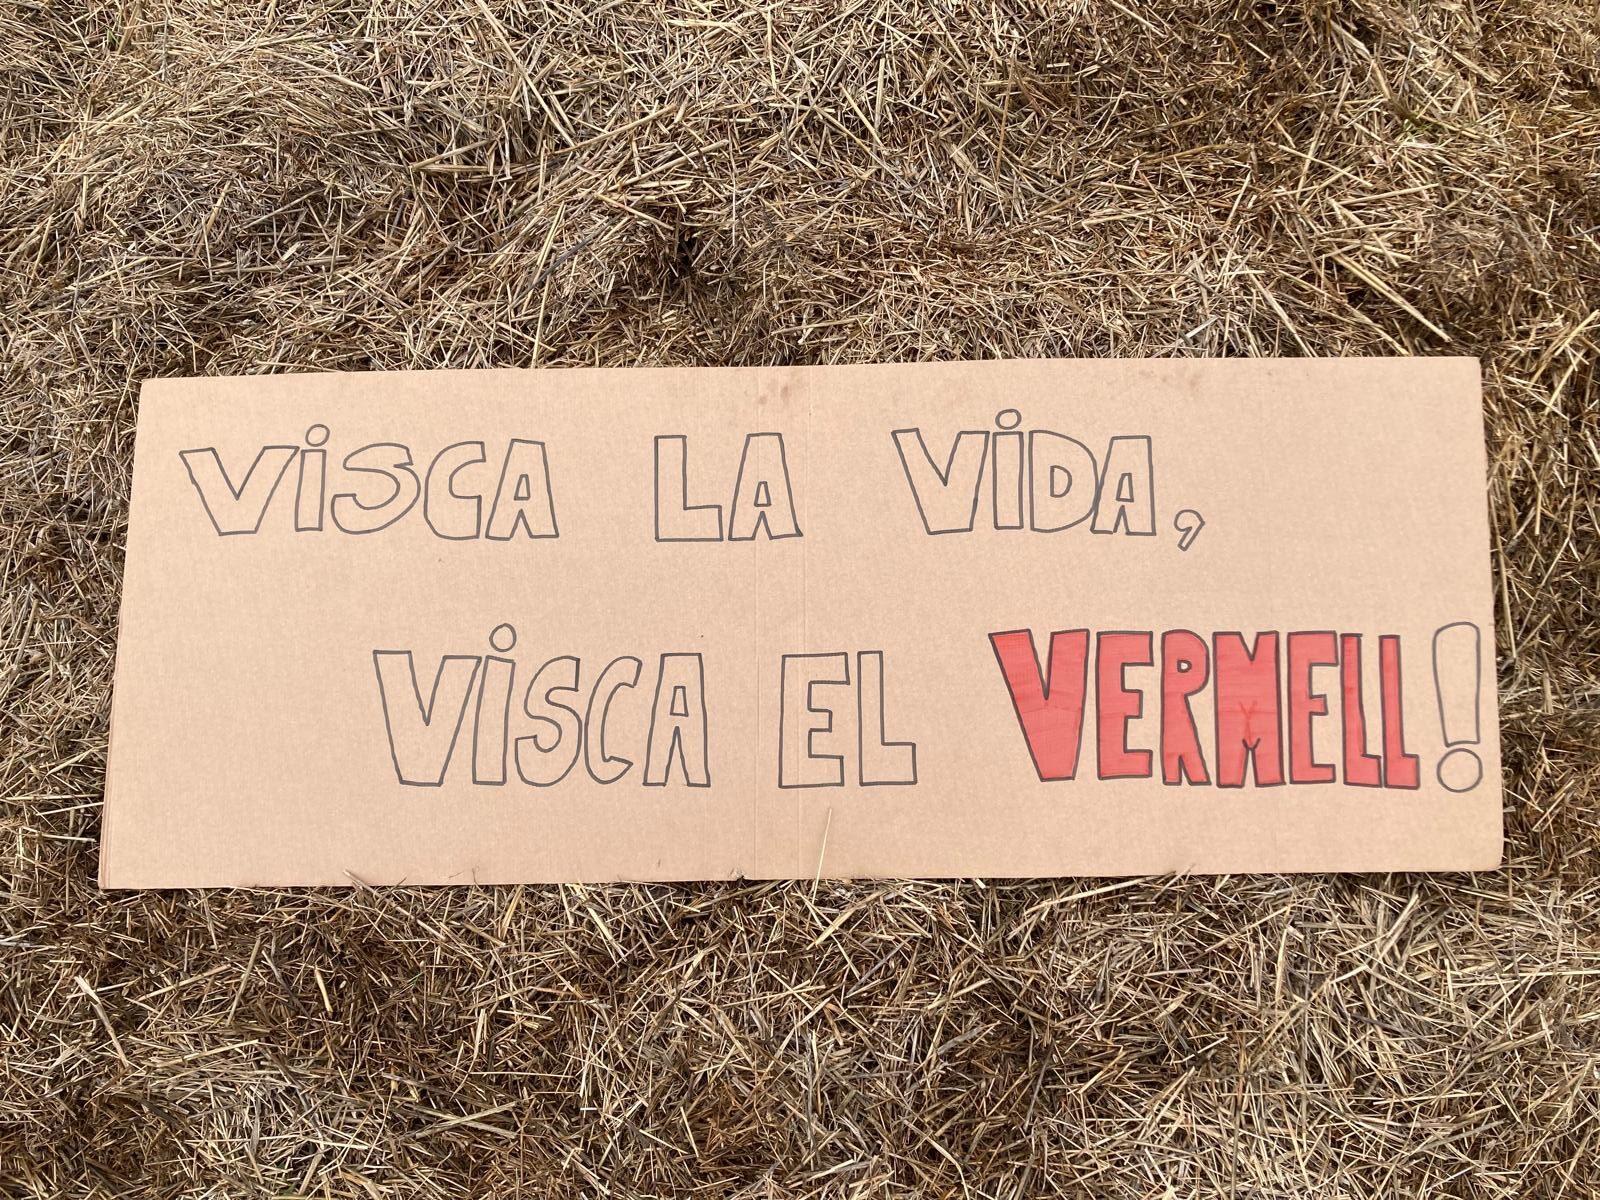 VISCA LA VIDA,
VISCA EL VERMELL!